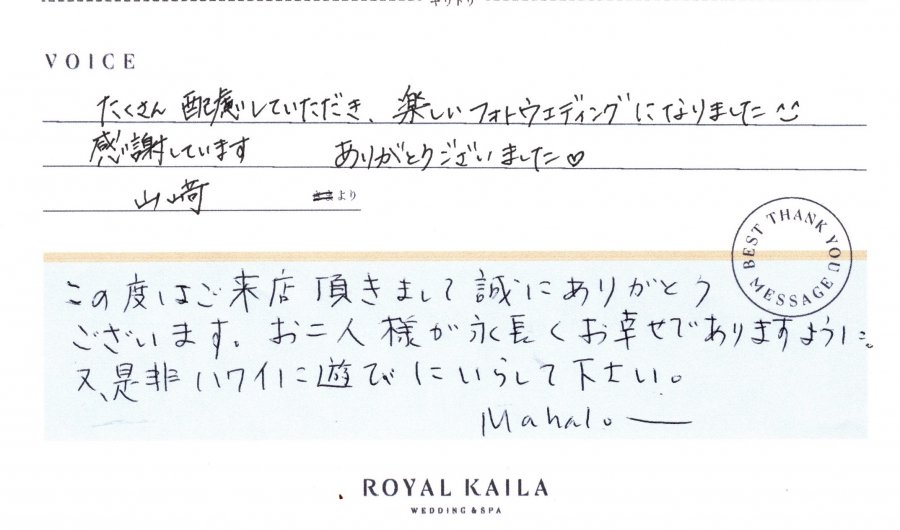 キリトリ
VOICE
たくさん 配慮していただき、楽しいフォトウェディングになりました
感謝しています ありがとうございました♡
山﨑 より
BEST THANK YOU MESSAGE
この度はご来店頂きまして誠にありがとう
ございます。お二人様が永長くお幸せでありますように。
又、是非ハワイに遊びにいらして下さい。
Mahalo
ROYAL KAILA
WEDDING & SPA